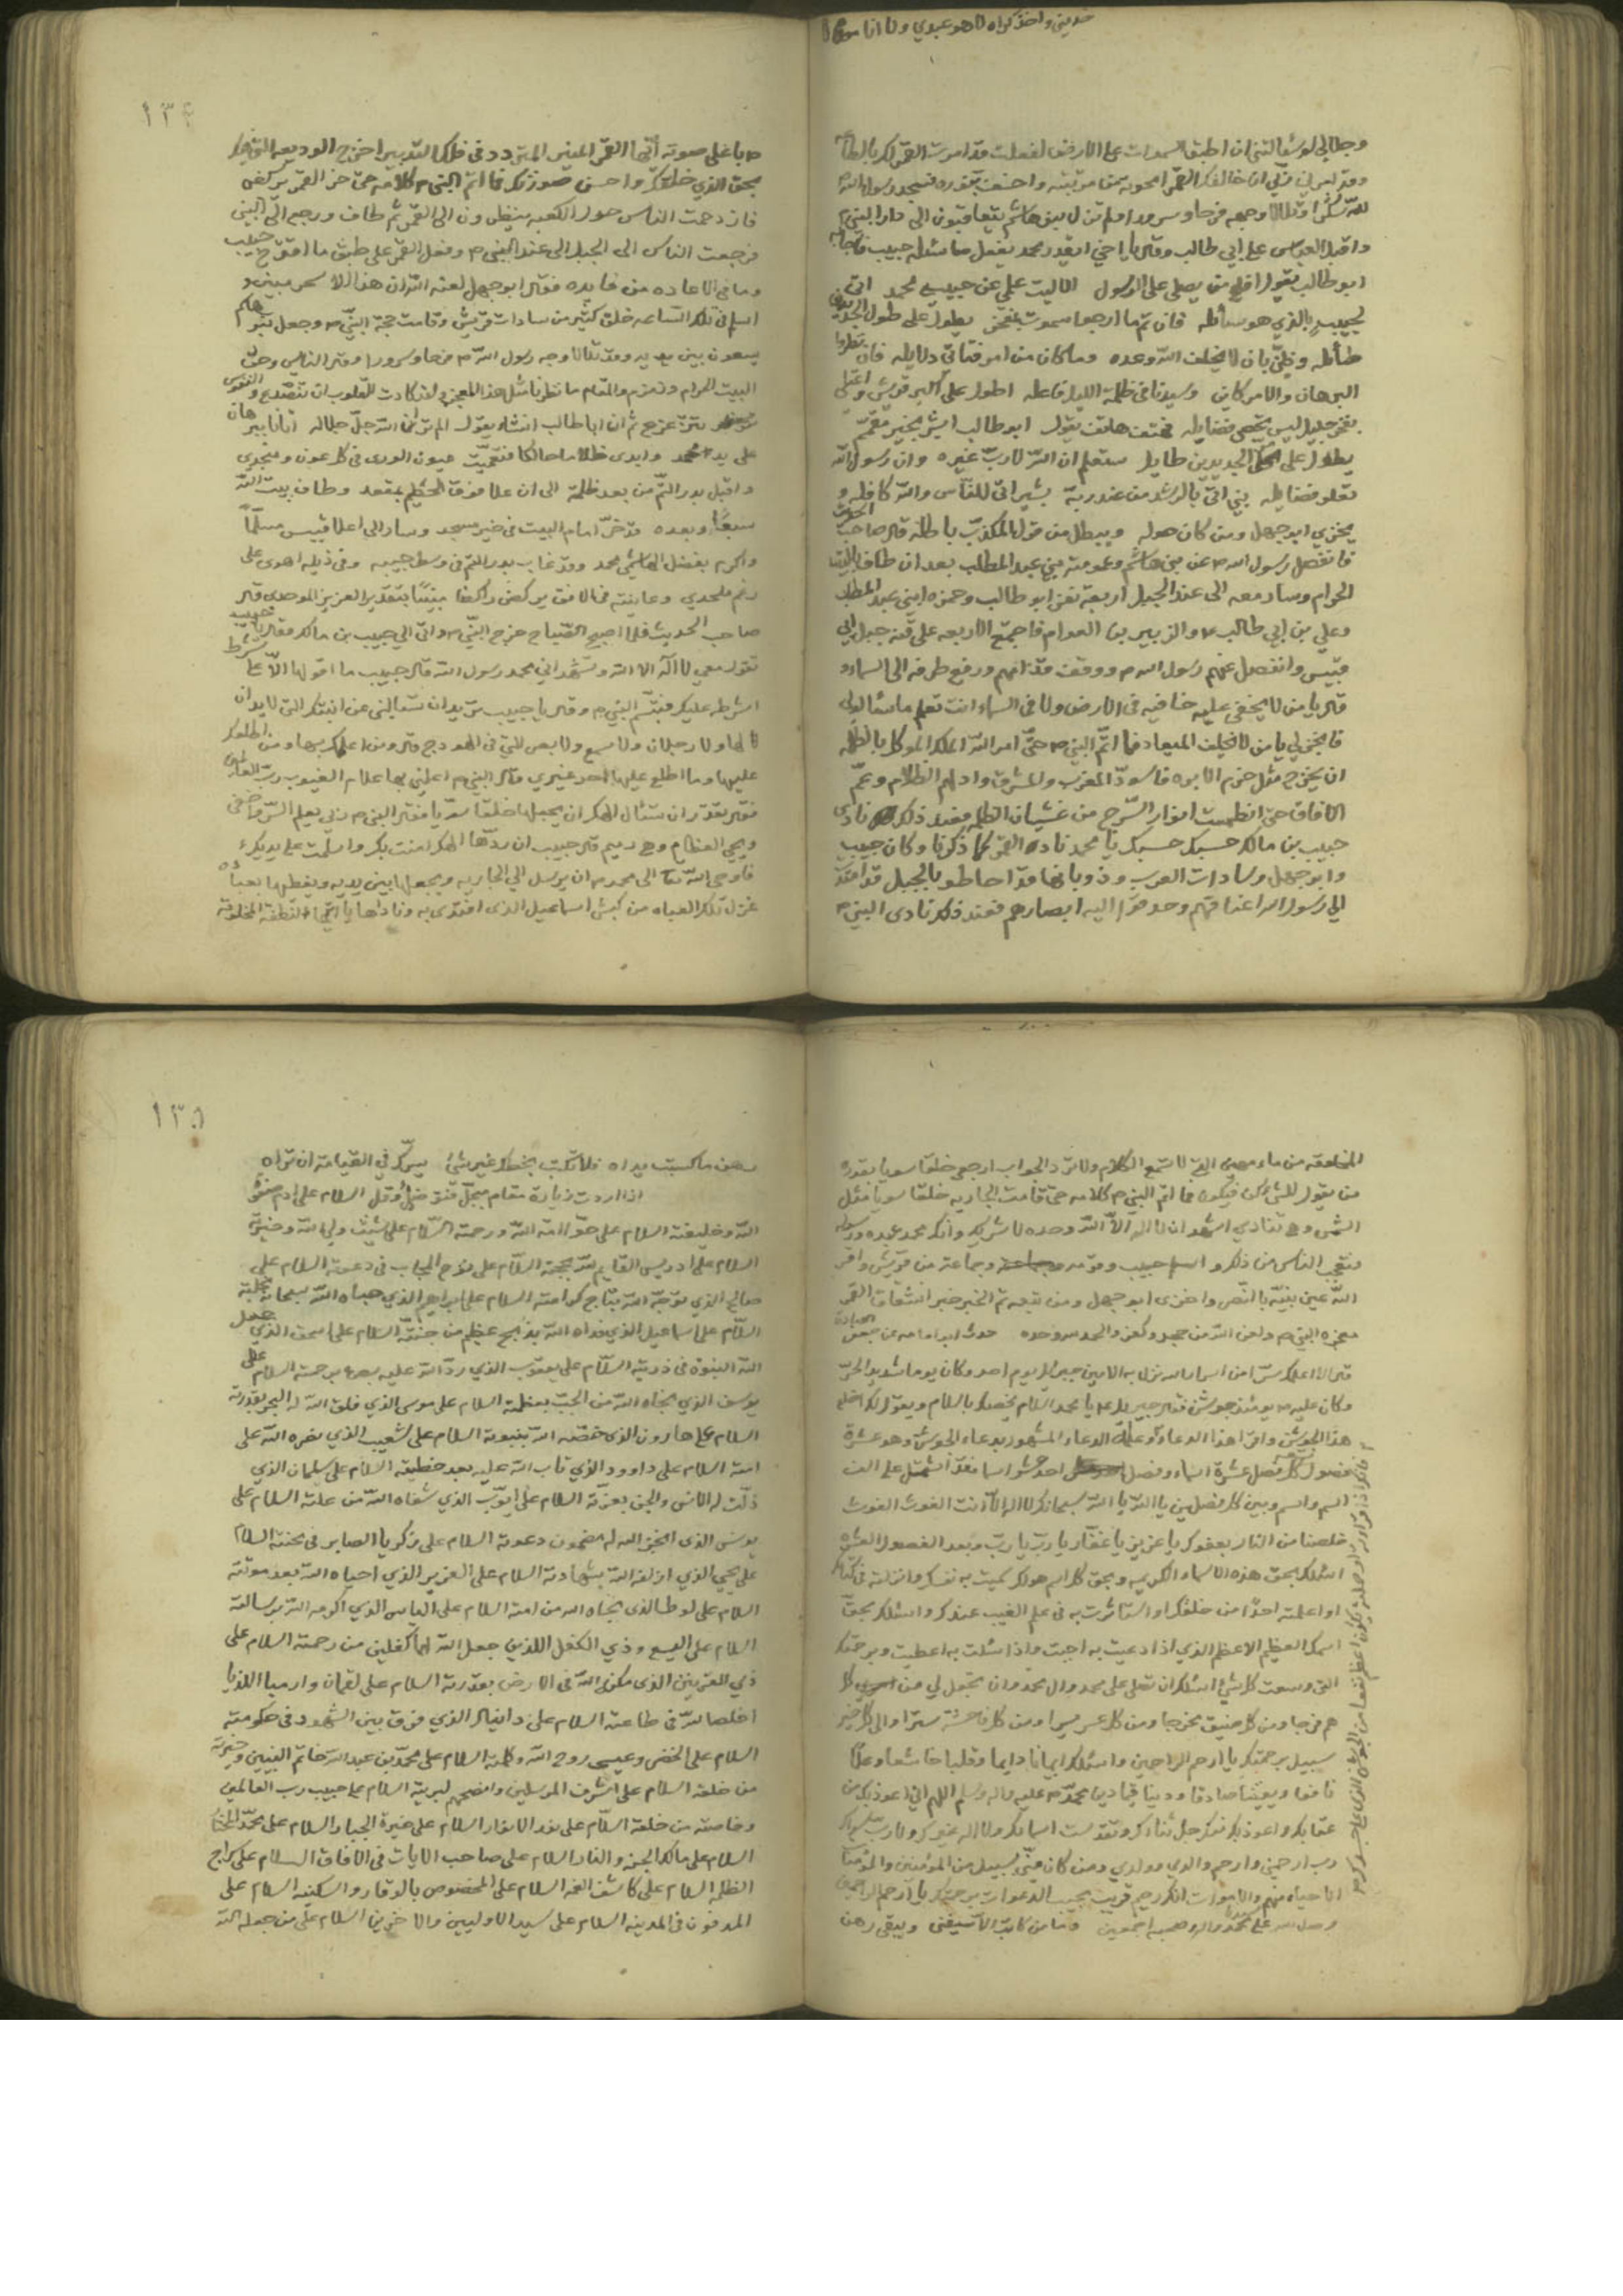 خديني واحذكراه لا هو عبدي ولا انا
وجلالي لو سئالتني ان اطبق السموات على الارض لفعلت قد امرت القمر لك بالطاعة
وقد امرني ربي ان خالفك القمر امحو به سمن مرتبته واخسف بنوره فسجد رسول الله
لله شكرا وتلالا وجهه فرحا وسرورا ولم تزل بني هاشم يتعاقبون الى دار النبي
واقبل العباس على ابي طالب وقال يا اخي ايقدر محمد يفعل ما سئله حبيب فاجابه
ابو طالب يقول افلح من يصلى على الرسول الا ليت علمي عن حبيب محمد اتى
لحبيب بالذي هو سائله فان تم ما ارجوا سموت بفخر يطول على طول الجديدين
طائله وظني بان لا يخلف الله وعده وما كان من امر فتاتي دلايله فان نظروا
البرهان والامر كاين وسيدنا في ظلمة الليل فاعله اطول على كل قريش واعتلى
بفخر جليل ليس تحصى فضايله فهتف هاتف يقول ابو طالب ابشر بخير مقمم
يطول على الجديدين طايل ستعلم ان الله لا رب غيره وان رسول الله
تعلو فضايله نبي اتى بالرشد من عند ربه بشيرا الى الناس والله كافله و
يخزي ابو جهل ومن كان حوله ويبطل من قول المكذب باطله قال صاحب الحديث
فانفصل رسول الله ص عن بني هاشم وعمومته بني عبد المطلب بعد ان طاف بالبيت
الحرام وسار معه الى عند الجبل اربعة نفر ابو طالب وحمزه ابني عبد المطلب
وعلي بن ابي طالب ع والزبير بن العوام فاجتمع الاربعه على قنه جبل ابي
قبيس وانفصل عنهم رسول الله ص ووقف قدامهم ورفع طرفه الى السماء و
قال يا من لا يخفى عليه خافيه في الارض ولا في السماء انت تعلم ما سئالوني
فانجز لي يا من لا تخلف الميعاد فما اتم النبي ص حتى امر الله الملك الموكل بالظلمه
ان يخرج مثل خرم الابره فاسود المغرب والمشرق وادلهم الظلام وعم
الافاق حتى انطمست انوار السرج من غشيان الظلمه فعند ذلك نادى
حبيب بن مالك حسبك حسبك يا محمد ناد القمر كما ذكرنا وكان حبيب
وابو جهل وسادات العرب وذوبانها قد احاطو بالجبل قد امتدت
الى رسول الله اعناقهم وحدقوا اليه ابصارهم فعند ذلك نادى النبي ص
١٣٤
باعلى صوته ايها القمر المنير المتردد في فلك التدبير اخرج الوديعه التي فيك
بحق الذي خلقك واحسن صورتك فما اتم النبي ص كلامه حتى خر القمر يركض
فازدحمت الناس حول الكعبه ينظرون الى القمر ثم طاف ورجع الى النبي
فرجعت الناس الى الجبل الى عند النبي ص وفعل القمر على طبق ما اقترح حبيب
وما في الاعاده من فايده فقال ابو جهل لعنه الله ان هذا الا سحر مبين و
اسلم في تلك الساعه خلق كثير من سادات قريش وقامت حجة النبي ص وجعل بنو هاشم
يسعون بين يديه وقد تلالا وجه رسول الله ص فرحا وسرورا وقال الناس وحق
البيت الحرام وزمزم والمقام ما نظرنا مثل هذا المعجز ولقد كادت القلوب ان تتصدع والنفوس
تنزعج ثم ان ابا طالب انشاء يقول الم تر ان الله جل جلاله اتانا ببرهان
على يد محمد وابدى ظلاما حالكا فتعميت عيون الورى في كل عون ومنجدي
واقبل بدر التم من بعد ظلمة الى ان علا فوق الحطيم بمقعد وطاف ببيت الله
سبعا وبعده قد خر امام البيت في خير مسجد وسار الى اعلا قبيس مسلما
واكرم بفضل الهاشمي محمد وقد غاب بدر التم في وسط جيبه وفي ذيله اهوى على
رغم ملحدي وعاينته في الافق يركض راكضا مبينا بتقدير العزيز الموحدي قال
صاحب الحديث فلما اصبح الصباح خرج النبي ص واتى الى حبيب بن مالك فقال يا حبيب
تقول معي لا اله الا الله وتشهد اني محمد رسول الله قال حبيب ما اقولها الا على شرط
اشرطه عليك فتبسم النبي ص وقال يا حبيب تريد ان تسئالني عن ابنتك التي لا يدان
لها ولا رجلان ولا سمع ولا بصر التي في الهودج قال ومن اعلمك بها ومن اطلعك
عليها وما اطلع عليها احد غيري قال النبي ص اعلمني بها علام الغيوب رب العالمين
فقال تقدر ان تسئال الهك ان يجعلها خلقا سويا فقال النبي ص ربي يعلم السر واخفى
ويحي العظام وهي رميم قال حبيب ان ردها الهك امنت بك واسلمت على يديك
فاوحى الله تعالى الى محمد ص ان يرسل الى الجاريه ويجعلها بين يديه ويغطيها بعباه
غزل تلك العباه من كبش اسماعيل الذي افتدى به وناداها يا ايتها النطفة المخلوقة
المخلوقه من ماء مهين التي لا تسمع الكلام ولا ترد الجواب ارجعي خلقا سويا بقدرة
من يقول للشيء كن فيكون فما اتم النبي ص كلامه حتى قامت الجاريه خلقا سويا مثل
الشمس وهي تنادي اشهد ان لا اله الا الله وحده لا شريك له وانك محمد عبده ورسوله
فتعجب الناس من ذلك واسلم حبيب وقومه وجماعة من قريش واقر
الله عين نبيه بالنصر واخزى ابو جهل ومن تبعه تم الخبر خبر انشقاق القمر
معجزه النبي ص ولعن الله من جحد وكفر والحمد لله وحده حدث ابو امامه عن جعفر
قال الا اعلمك سرا من اسرار الله نزل به الامين جبريل يوم احد وكان يوما شديد الحر
وكان عليه ص يومئذ جوشن فقال جبريل ع يا محمد السلام يخصك بالسلام ويقول لك اخلع
هذا الجوشن واقرا هذا الدعاء وعلمه الدعاء المشهور بدعاء الجوشن وهو عشرة
فصول كل فصل عشرة اسماء وفصل احد عشر اسما فقد اشتمل على الف
اسم واسم وبين كل فصلين يا الله يا الله سبحانك لا اله الا انت الغوث الغوث
خلصنا من النار بعفوك يا عزيز يا غفار يا رب يا رب وبعد الفصول العشره
اسئلك بحق هذه الاسماء الكريمه وبحق كل اسم هو لك سميت به نفسك وانزلته في كتابك
او اعلمته احدا من خلقك او استاثرت به في علم الغيب عندك واسئلك بحق
اسمك العظيم الاعظم الذي اذا دعيت به اجبت واذا سئلت به اعطيت وبرحمتك
التي وسعت كل شيء اسئلك ان تصلى على محمد وال محمد وان تجعل لي من كل
هم فرجا ومن كل ضيق مخرجا ومن كل عسر يسرا ومن كل فاحشة سترا والى كل خير
سبيل برحمتك يا ارحم الراحمين واسئلك ايمانا دايما وقلبا خاشعا وعلما
نافعا ويقينا صادقا ودينا قيما دين محمد ص عليه واله وسلم اللهم اني اعوذ بك من
عقابك واعوذ بك منك جل ثناؤك وتقدست اسماؤك ولا اله غيرك ولا رب سواك
رب ارحمني وارحم والدي وولدي ومن كان مني بسبيل من المؤمنين والمؤمنات
الاحياء منهم والاموات انك رحيم قريب مجيب الدعوات برحمتك يا ارحم الراحمين
وصلى الله على محمد واله وصحبه اجمعين وما من كاتب الا سيفنى ويبقى رهن
١٣٥
رهن ما كسبت يداه فلا تكتب بخطك غير شيء يسرك في القيامة ان تراه
اذا اردت زيارة مقام مبجل فقل السلام على ادم صفوة
الله وخليفته السلام على حوا امة الله ورحمته السلام على شيث ولي الله وخيرته
السلام على ادريس القايم لله بحجته السلام على نوح المجاب في دعوته السلام على
صالح الذي توجه الله بتاج كرامته السلام على ابراهيم الذي حباه الله سبحانه بخلته
السلام على اسماعيل الذي فداه الله بذبح عظيم من جنته السلام على اسحق الذي جعل
الله النبوة في ذريته السلام على يعقوب الذي رد الله عليه بصره برحمته السلام على
يوسف الذي نجاه الله من الجب بعظمته السلام على موسى الذي فلق الله له البحر بقدرته
السلام على هارون الذي خصه الله بنبوته السلام على شعيب الذي نصره الله على
امته السلام على داوود الذي تاب الله عليه بعد خطيئته السلام على سليمان الذي
ذلت له الانس والجن بعزته السلام على ايوب الذي شفاه الله من علته السلام على
يونس الذي انجز الله له مضمون دعوته السلام على زكريا الصابر في محنته السلام
على يحيى الذي ازلفه الله بشهادته السلام على العزير الذي احياه الله بعد موتته
السلام على لوط الذي نجاه الله من امته السلام على الياس الذي اكرمه الله برسالته
السلام على اليسع وذي الكفل اللذين جعل الله لهما كفلين من رحمته السلام على
ذي القرنين الذي مكنه الله في الارض بقدرته السلام على لقمان وارميا اللذيا
اخلصا لله في طاعته السلام على دانيال الذي فرق بين الشهود في حكومته
السلام على الخضر وعيسى روح الله وكلمته السلام على محمد بن عبد الله خاتم النبيين وخيرته
من خلقه السلام على اشرف المرسلين وانصحهم لبريته السلام على حبيب رب العالمين
وخاصته من خلقه السلام على نور الانوار السلام على خيرة الجبار السلام على محمد المختار
السلام على مالك الجنه والنار السلام على صاحب الايات في الافاق السلام على سراج
الظلم السلام على كاشف الغمه السلام على المخصوص بالوقار والسكينه السلام على
المدفون في المدينه السلام على سيد الاوليين والاخرين السلام على من جعله الله